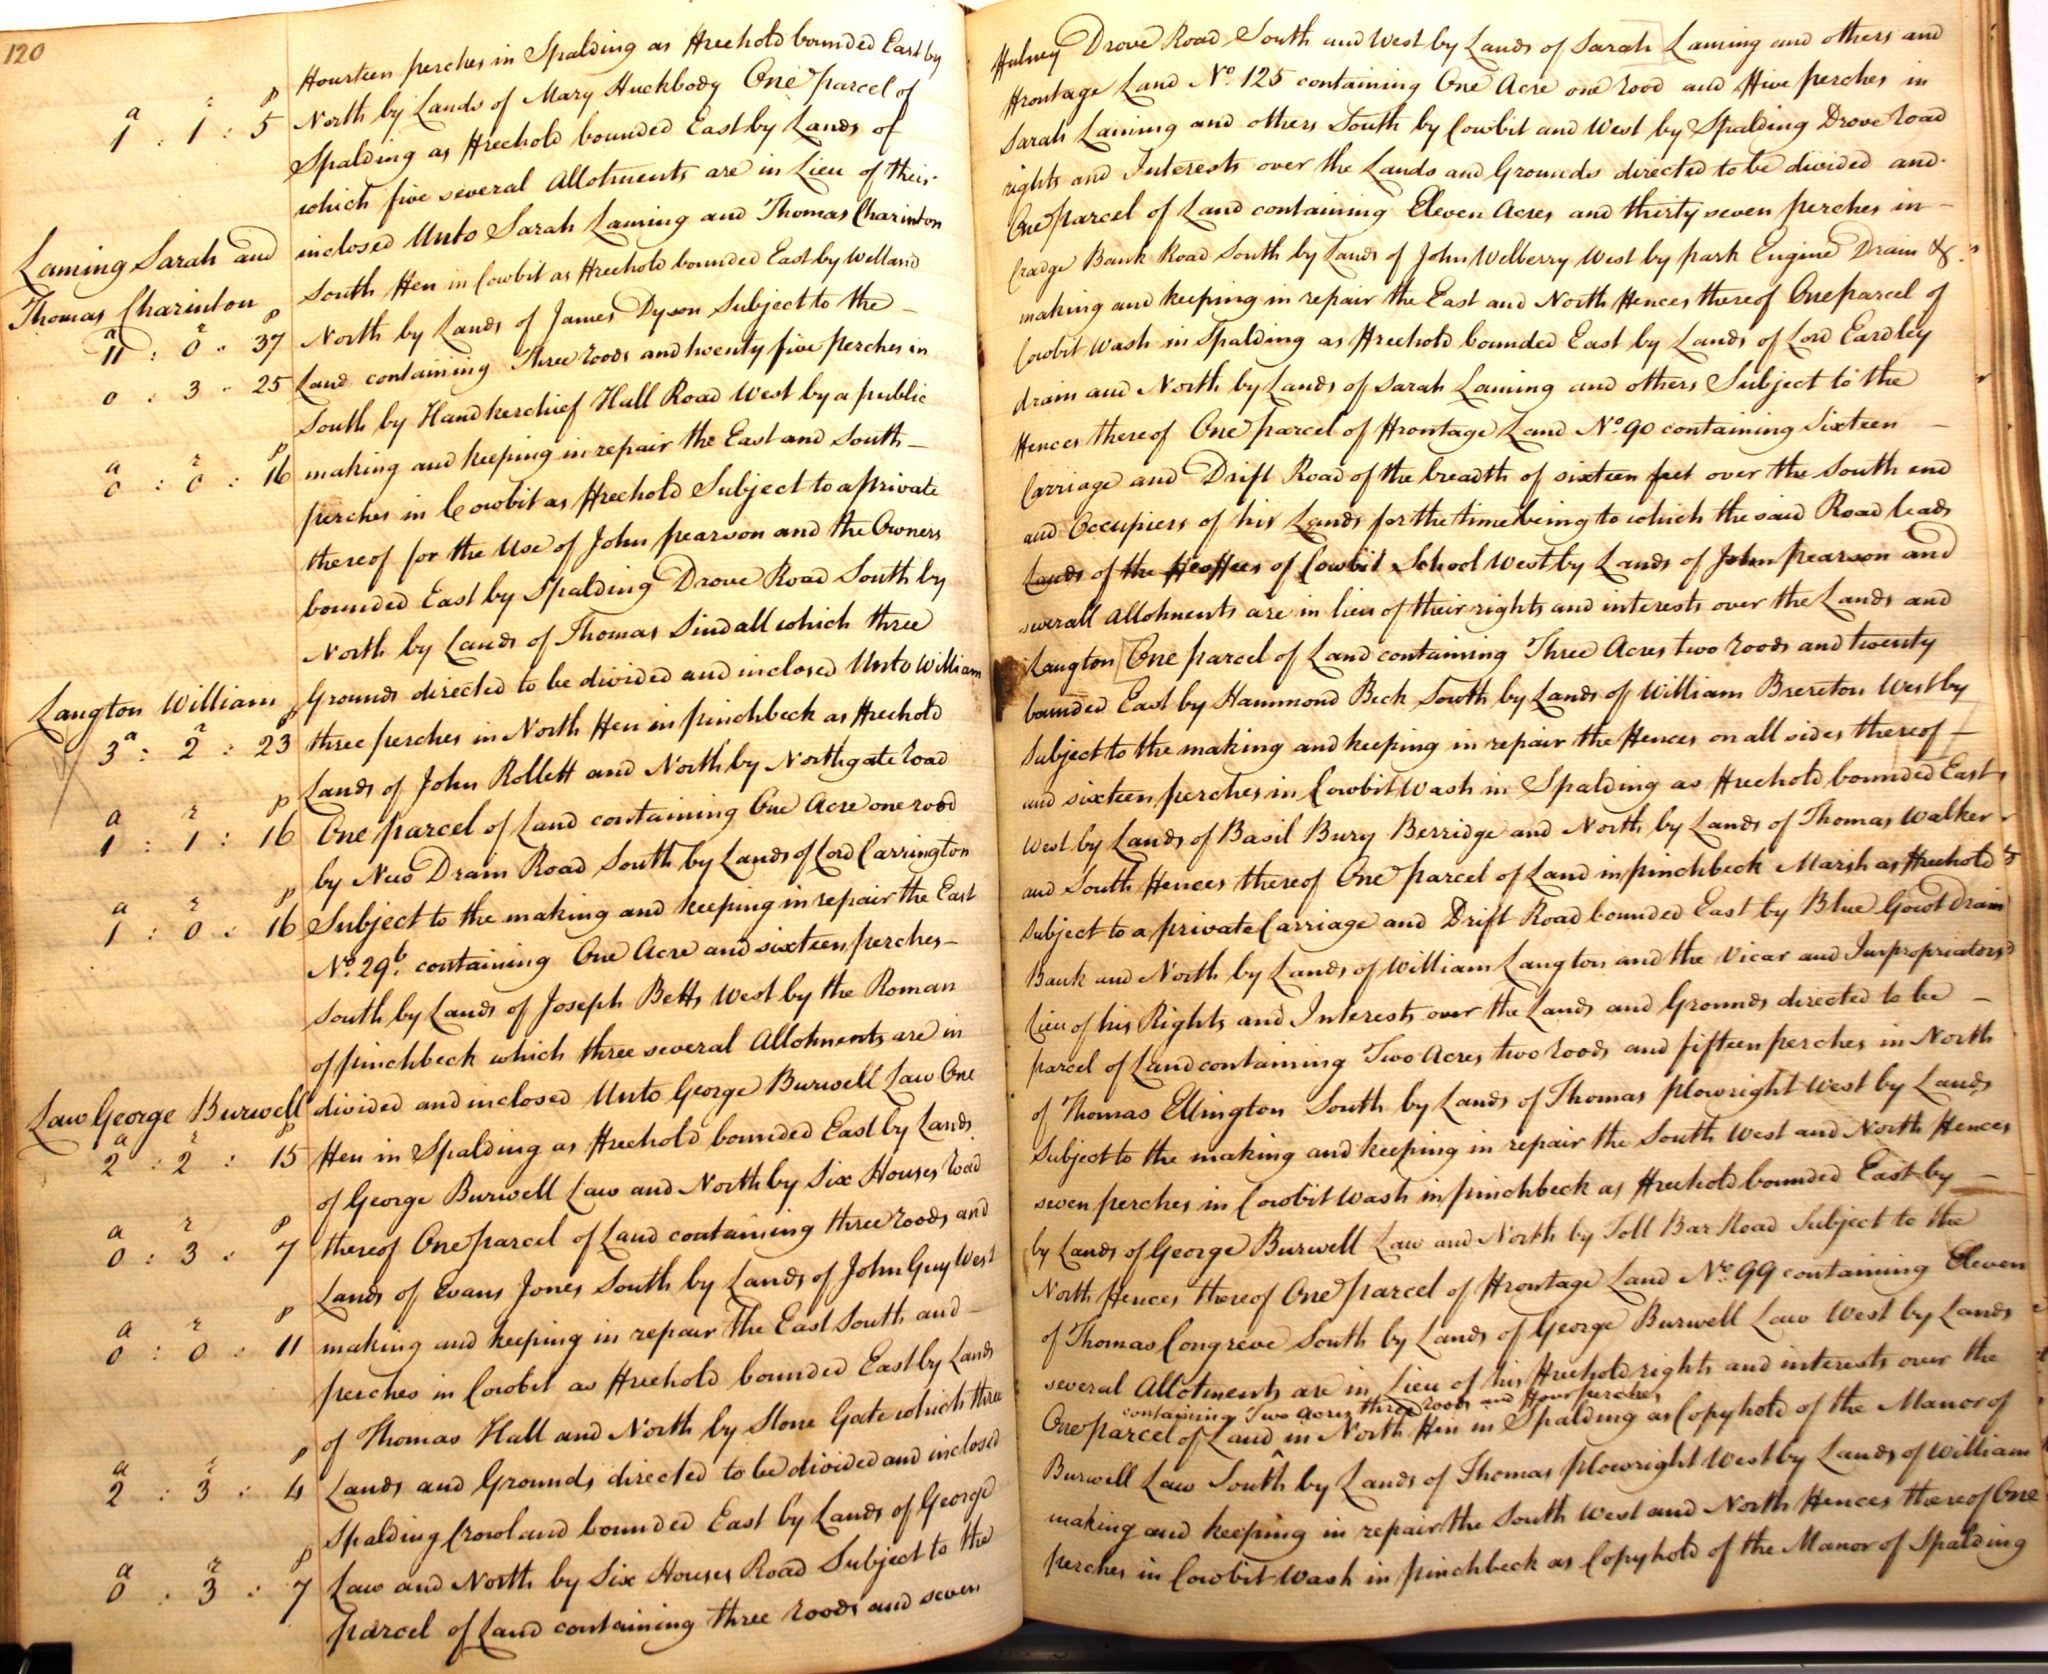 120
Fourteen perches in Spalding as Freehold bounded East by Halney Drove Road South and West by Lands of Sarah Laming and others and
a r p
1 : 1 : 5 North by Lands of Mary Huckbody One parcel of Frontage Land No. 125 containing One Acre one rood and Five perches in
Spalding as Freehold bounded East by Lands of Sarah Laming and others South by Cowbit and West by Spalding Drove Road
which five several Allotments are in Lieu of their rights and Interests over the Lands and Grounds directed to be divided and
Laming Sarah and inclosed Unto Sarah Laming and Thomas Charinton One parcel of Land containing Eleven Acres and thirty seven perches in
Thomas Charinton South Fen in Cowbit as Freehold bounded East by Welland Cradge Bank Road South by Lands of John Welberry West by park Engine Drain &
a r p
11 : 0 : 37 North by Lands of James Dyson Subject to the making and keeping in repair the East and North Fences thereof One parcel of
0 : 3 : 25 Land containing Three roods and twenty five perches in Cowbit Wash in Spalding as Freehold bounded East by Lands of Lord Eardley
South by Handkerchief Hall Road West by a public drain and North by Lands of Sarah Laming and others Subject to the
a r p
0 : 0 : 16 making and keeping in repair the East and South Fences thereof One parcel of Frontage Land No. 90 containing Sixteen
perches in Cowbit as Freehold Subject to a private Carriage and Drift Road of the breadth of sixteen feet over the South end
thereof for the Use of John pearson and the Owners and Occupiers of his Lands for the time being to which the said Road leads
bounded East by Spalding Drove Road South by Lands of the Feoffees of Cowbit School West by Lands of John pearson and
North by Lands of Thomas Sindall which three several Allotments are in lieu of their rights and interests over the Lands and
Langton William Grounds directed to be divided and inclosed Unto William Langton One parcel of Land containing Three Acres two roods and twenty
a r p
3 : 2 : 23 three perches in North Fen in pinchbeck as Freehold bounded East by Hammond Beck South by Lands of William Brereton West by
Lands of John Rollett and North by Northgate road Subject to the making and keeping in repair the Fences on all sides thereof
a r p
1 : 1 : 16 One parcel of Land containing One Acre one rood and sixteen perches in Cowbit Wash in Spalding as Freehold bounded East
by New Dram Road South by Lands of Lord Carrington West by Lands of Basil Bury Berridge and North by Lands of Thomas Walker
a r p
1 : 0 : 16 Subject to the making and keeping in repair the East and South Fences thereof One parcel of Land in pinchbeck Marsh as Freehold
No. 29b. containing One Acre and sixteen perches Subject to a private Carriage and Drift Road bounded East by Blue Gowt Drain
South by Lands of Joseph Betts West by the Roman Bank and North by Lands of William Langton and the Vicar and Impropriators
of pinchbeck which three several Allotments are in Lieu of his Rights and Interests over the Lands and Grounds directed to be
Law George Burwell divided and inclosed Unto George Burwell Law One parcel of Land containing Two Acres two roods and fifteen perches in North
a r p
2 : 2 : 15 Fen in Spalding as Freehold bounded East by Lands of Thomas Ellington South by Lands of Thomas plowright West by Lands
of George Burwell Law and North by Six Houses road Subject to the making and keeping in repair the South West and North Fences
a r p
0 : 3 : 7 thereof One parcel of Land containing three roods and seven perches in Cowbit Wash in pinchbeck as Freehold bounded East by
Lands of Evans Jones South by Lands of John Guy West by Lands of George Burwell Law and North by Toll Bar Road Subject to the
a r p
0 : 0 : 11 making and keeping in repair the East South and North Fences thereof One parcel of Frontage Land No. 99 containing Eleven
perches in Cowbit as Freehold bounded East by Lands of Thomas Congreve South by Lands of George Burwell Law West by Lands
of Thomas Hall and North by Stone Gate which three several Allotments are in Lieu of his Freehold rights and interests over the
containing Two Acres three roods and Four perches
a r p
2 : 3 : 4 Lands and Grounds directed to be divided and inclosed One parcel of Land ^ in North Fen in Spalding as Copyhold of the Manor of
Spalding Crowland bounded East by Lands of George Burwell Law South by Lands of Thomas plowright West by Lands of William
a r p
0 : 3 : 7 Law and North by Six Houses Road Subject to the making and keeping in repair the South West and North Fences thereof One
parcel of Land containing three roods and seven perches in Cowbit Wash in pinchbeck as Copyhold of the Manor of Spalding